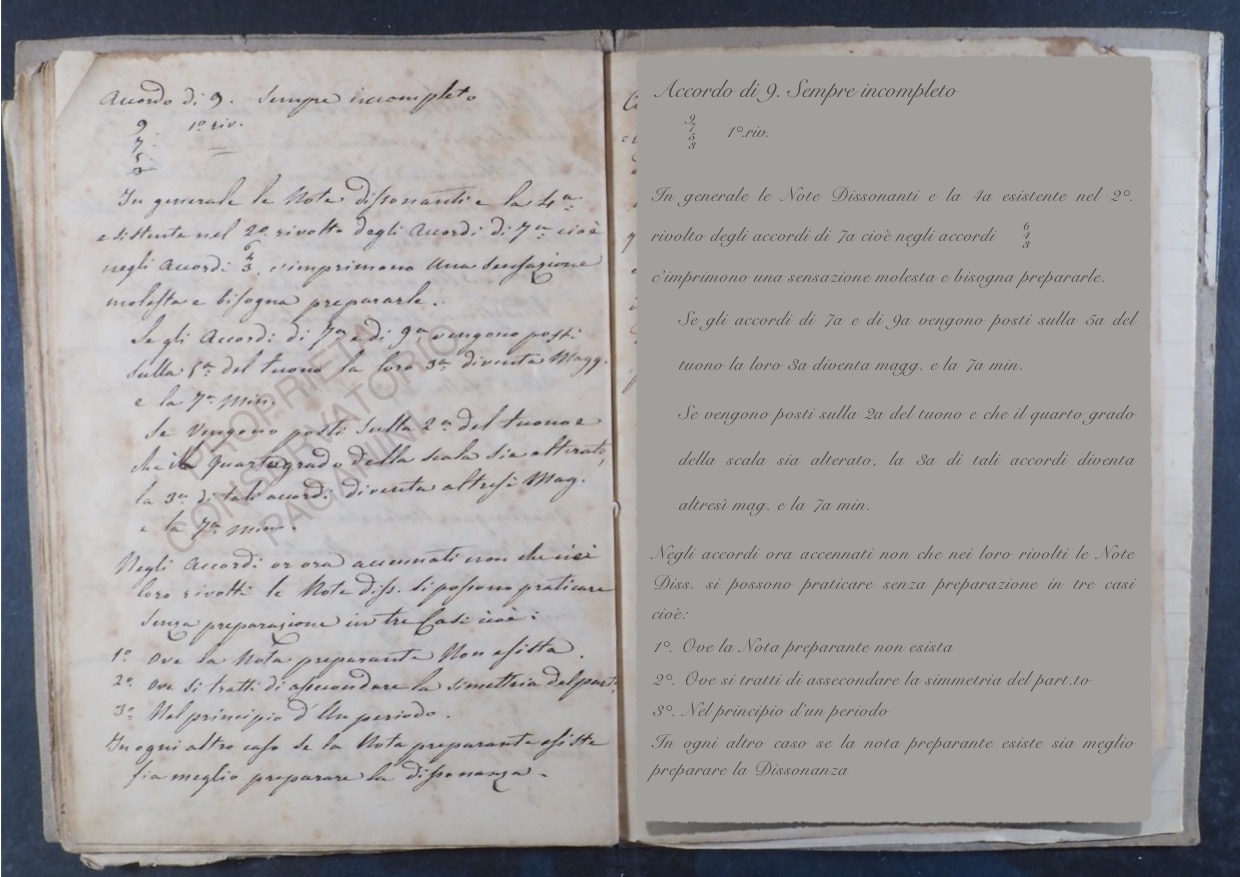 Accordo di 9. Sempre incompleto
9. 1º riv.
7.
5.
3
In generale le Note dissonanti e la 4a
esistente nel 2º rivolto degli Accordi di 7a cioè
negli Accordi 6 4 3. c'imprimono Una sensazione
molesta e bisogna prepararle.
Se gli Accordi di 7a e di 9a vengono posti
sulla 5a del tuono la loro 3a diventa Magg.
e la 7a Min.
Se Vengono posti sulla 2a del tuono e
che il quarto grado della scala sia alterato,
la 3a di tali accordi diventa altresì Mag.
e la 7a min.
Negli Accordi or ora accennati non che nei
loro rivolti le Note diss. si possono praticare
senza preparazione in tre Casi cioè:
1º Ove la Nota preparante Non esista.
2º Ove si tratti di assecondare la simettria del part.to
3º Nel principio d'Un periodo.
In ogni altro caso se la Nota preparante esiste
sia meglio preparare la dissonanza.
PROPRIETA'
CONSERVATORIO
PAGANINI
Accordo di 9. Sempre incompleto
9
7
5
3
1º.riv.
In generale le Note Dissonanti e la 4a esistente nel 2º.
rivolto degli accordi di 7a cioè negli accordi 6 4 3
c'imprimono una sensazione molesta e bisogna prepararle.
Se gli accordi di 7a e di 9a vengono posti sulla 5a del
tuono la loro 3a diventa magg. e la 7a min.
Se vengono posti sulla 2a del tuono e che il quarto grado
della scala sia alterato, la 3a di tali accordi diventa
altresì mag. e la 7a min.
Negli accordi ora accennati non che nei loro rivolti le Note
Diss. si possono praticare senza preparazione in tre casi
cioè:
1º. Ove la Nota preparante non esista
2º. Ove si tratti di assecondare la simmetria del part.to
3º. Nel principio d'un periodo
In ogni altro caso se la nota preparante esiste sia meglio
preparare la Dissonanza